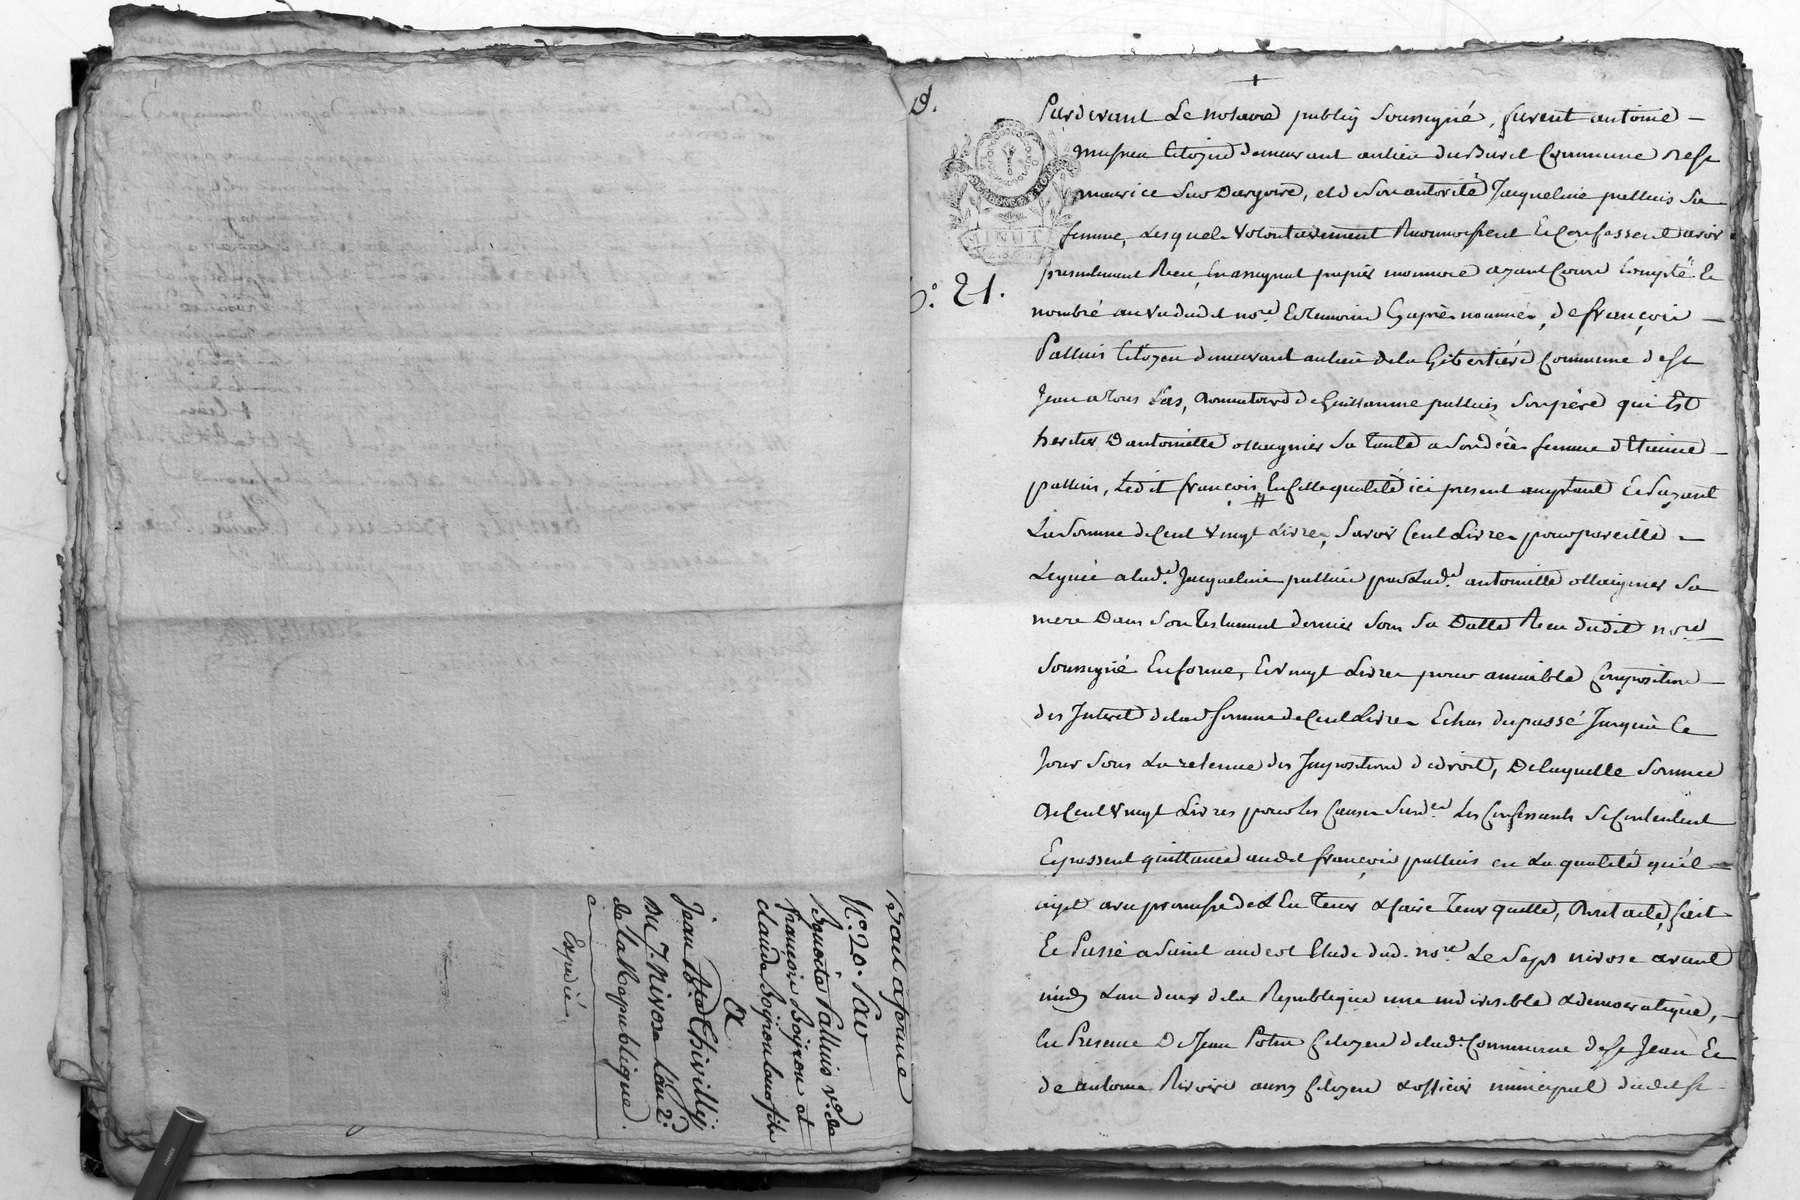 Bail aferme
N.° 20. Par
Benoite Palluis v.e de
françois Boiron et
claude Boiron leur fils
A
Jean B.te Thivilliy
Du 7. Nivose L'an 2.
de la Republique.
Expédié
D.
MINUT
N.° 21.
Pardevant Le notaire public Soussigné, furent antoine
citoyen demeurant au lieu du Buret Commune de St
maurice Sur Dargoire, et de Son autorité Jacqueline palluis Sa
femme, Lesquels Volontairement Reconnoissent Et Confessent avoir
presentement Reçu, En assignat papier monnoie ayant Cours Compté Et
nombré au Vu dudit no.re Et temoins Cyaprès nommés, de françois
Palluis Citoyen demeurant au lieu de la Gibertiere Commune de St
Jean a Tous Las, de Guillaume palluis Son père qui Est
heritier D'antoinette ollagnier Sa Tante a Son décès femme d'Etienne
palluis, Ledit françois En cette qualité ici present acceptant Et payant
La Somme de Cent Vingt Livres, Savoir Cent Livres pour pareille
Leguée a lad.e Jacqueline palluis par Lad.e antoinette ollagnier Sa
mere Dans Son Testament dernier Sous Sa Datte Reçu dudit no.re
Soussigné En forme, Et Vingt Livres pour amiable Composition
des Interet de lad. Somme de Cent Livres Echus du passé Jusqu'à Ce
Jour Sous La retenue des Impositions de droit, De laquelle Somme
de Cent Vingt Livres pour les Causes Susd.es Les Confessants Se Contentent
Et passent quittance audit françois palluis en La qualité qu'il
agit avec promesse de L'En Tenir & faire Tenir quitte, Dont acte, fait
Et Passé a Saint andeol Etude dud. no.re Le Sept nivose avant
midy L'an deux de la Republique une indivisible & democratique,
En Presence De Jean Citoyen de lad. Commune de St Jean Et
de antoine Rivoire aussy Citoyen & officier municipal dudit St